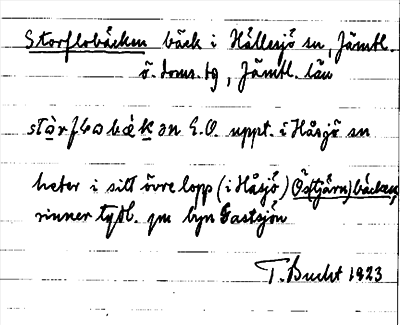 Storflobäcken bäck i Hällesjö sn, Jämtl.
ö. doms. tg, Jämtl. län
stòrflobækən E.O. uppt. i Håsjö sn
heter i sitt övre lopp (i Håsjö) Ös(tjärn)bäcken,
rinner tydl. gm byn Gastsjön
T. Bucht 1923